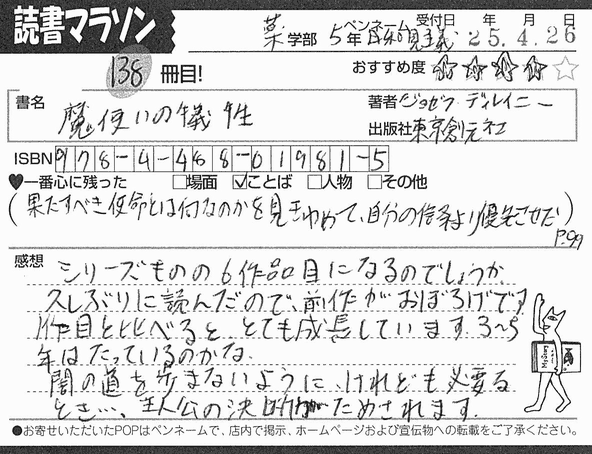 読書マラソン
薬学部 5年 ペンネーム 日和見主義 受付日 25年 4月 26日
138 冊目! おすすめ度 ★★★★☆
書名 魔使いの犠牲
著者名 ジョゼフ ディレイニー
出版社 東京創元社
ISBN 978-4-488-01981-5
♥一番心に残った □場面 ☑ことば □人物 □その他
(果たすべき使命とは何なのかを見きわめて、自分の信条より優先させた)
P.99
感想
シリーズものの6作品目になるのでしょうか
久しぶりに読んだので、前作がおぼろげです
1作目と比べると、とても成長しています 3〜5
年はたっているのかな。
闇の道を歩まないように、けれども必要な
とき…、主人公の決断がためされます。
●お寄せいただいたPOPはペンネームで、店内で掲示、ホームページおよび宣伝物への転載をご了承ください。